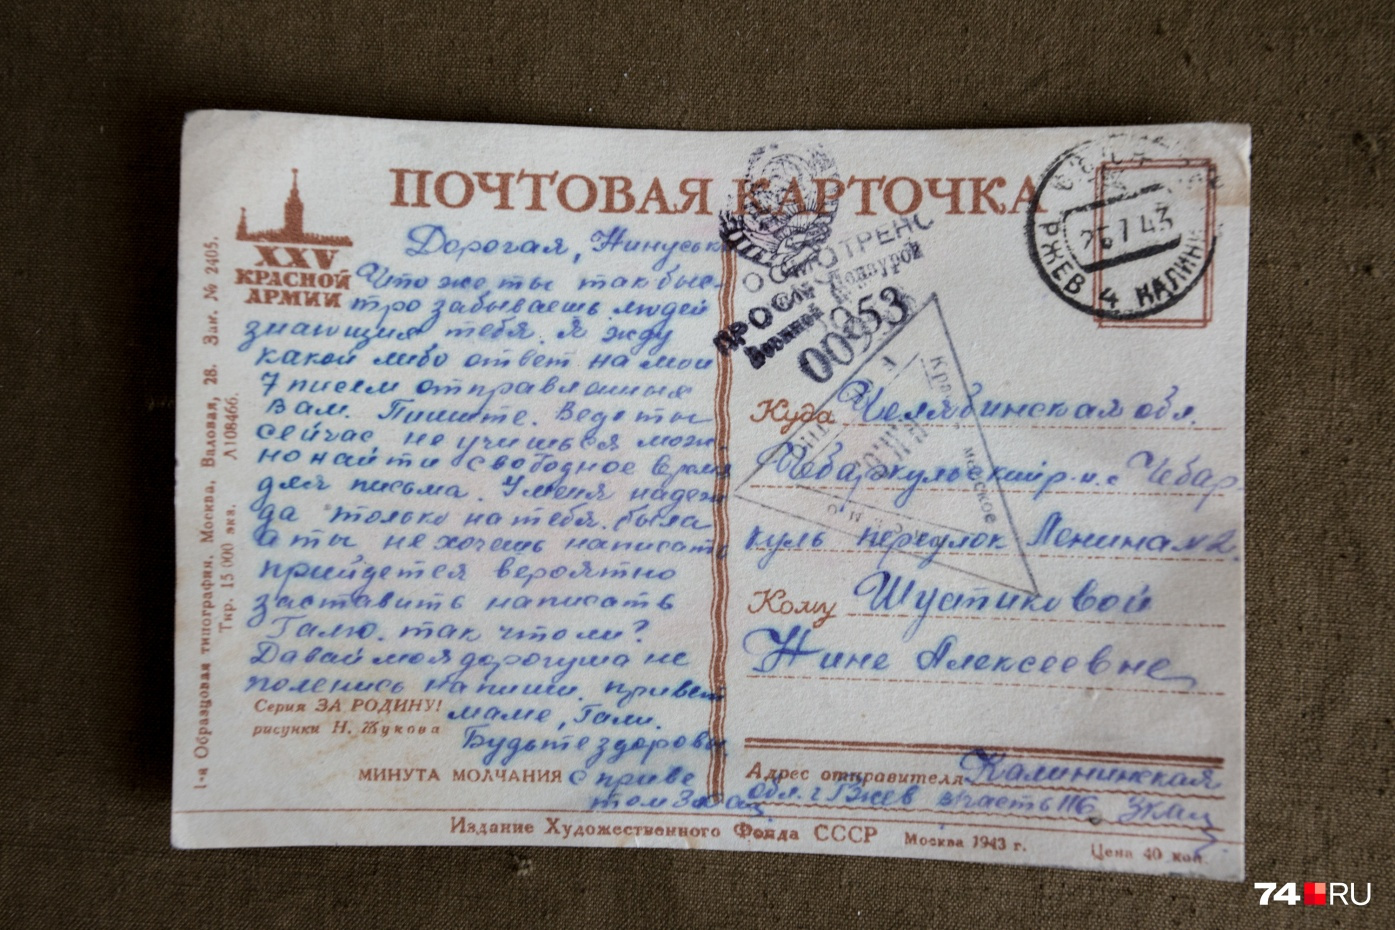 ПОЧТОВАЯ КАРТОЧКА
XXV
КРАСНОЙ
АРМИИ
Дорогая, Нинуськ
Что же ты так быс-
тро забываешь людей
знающих тебя. Я жду
какой либо ответ на мои
7 писем отправленных
Вам. Пишите. Ведь ты
сейчас не учишься мож-
но найти свободное время
для письма. У меня надеж
да только на тебя была
а ты не хочешь написать
прийдется вероятно
заставить написать
Галю. так что ли?
Давай моя дорогуша не
поленись напиши. привет
маме, Гали.
Будьте здоровы
с приве
том
Серия ЗА РОДИНУ!
рисунки Н. Жукова
МИНУТА МОЛЧАНИЯ
1-я Образцовая типография, Москва, Валовая, 28. Зак. № 2405.
Тир. 15 000 экз. Л108466.
ОСМОТРЕНО
ПРОСМ
Военной Цензурой
00953
25 7 43
РЖЕВ 4 КАЛИНИ
Красн
московское
Куда Челябинская обл.
Чебаркульский р-н. с Чебар
куль переулок Ленина №2.
Кому Шустиковой
Нине Алексеевне
Адрес отправителя Калининская
обл. г Ржев в/часть 116
Издание Художественного Фонда СССР Москва 1943 г. Цена 40 коп.
74.RU